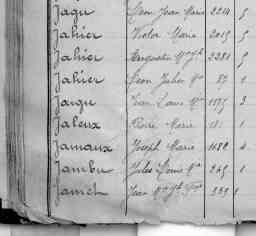 Jagu Jean Marie 2214 5
Jahier Victor Marie 2015 5
Jahier Auguste 2281 5
Jahier Jean Julien 87 1
Jaigu Jean Louis 1575 3
Jaleux Pierre Marie 1
Jamaux Joseph Marie 1682 4
Jambu Jules Louis 245 1
Jamet Jean 239 1